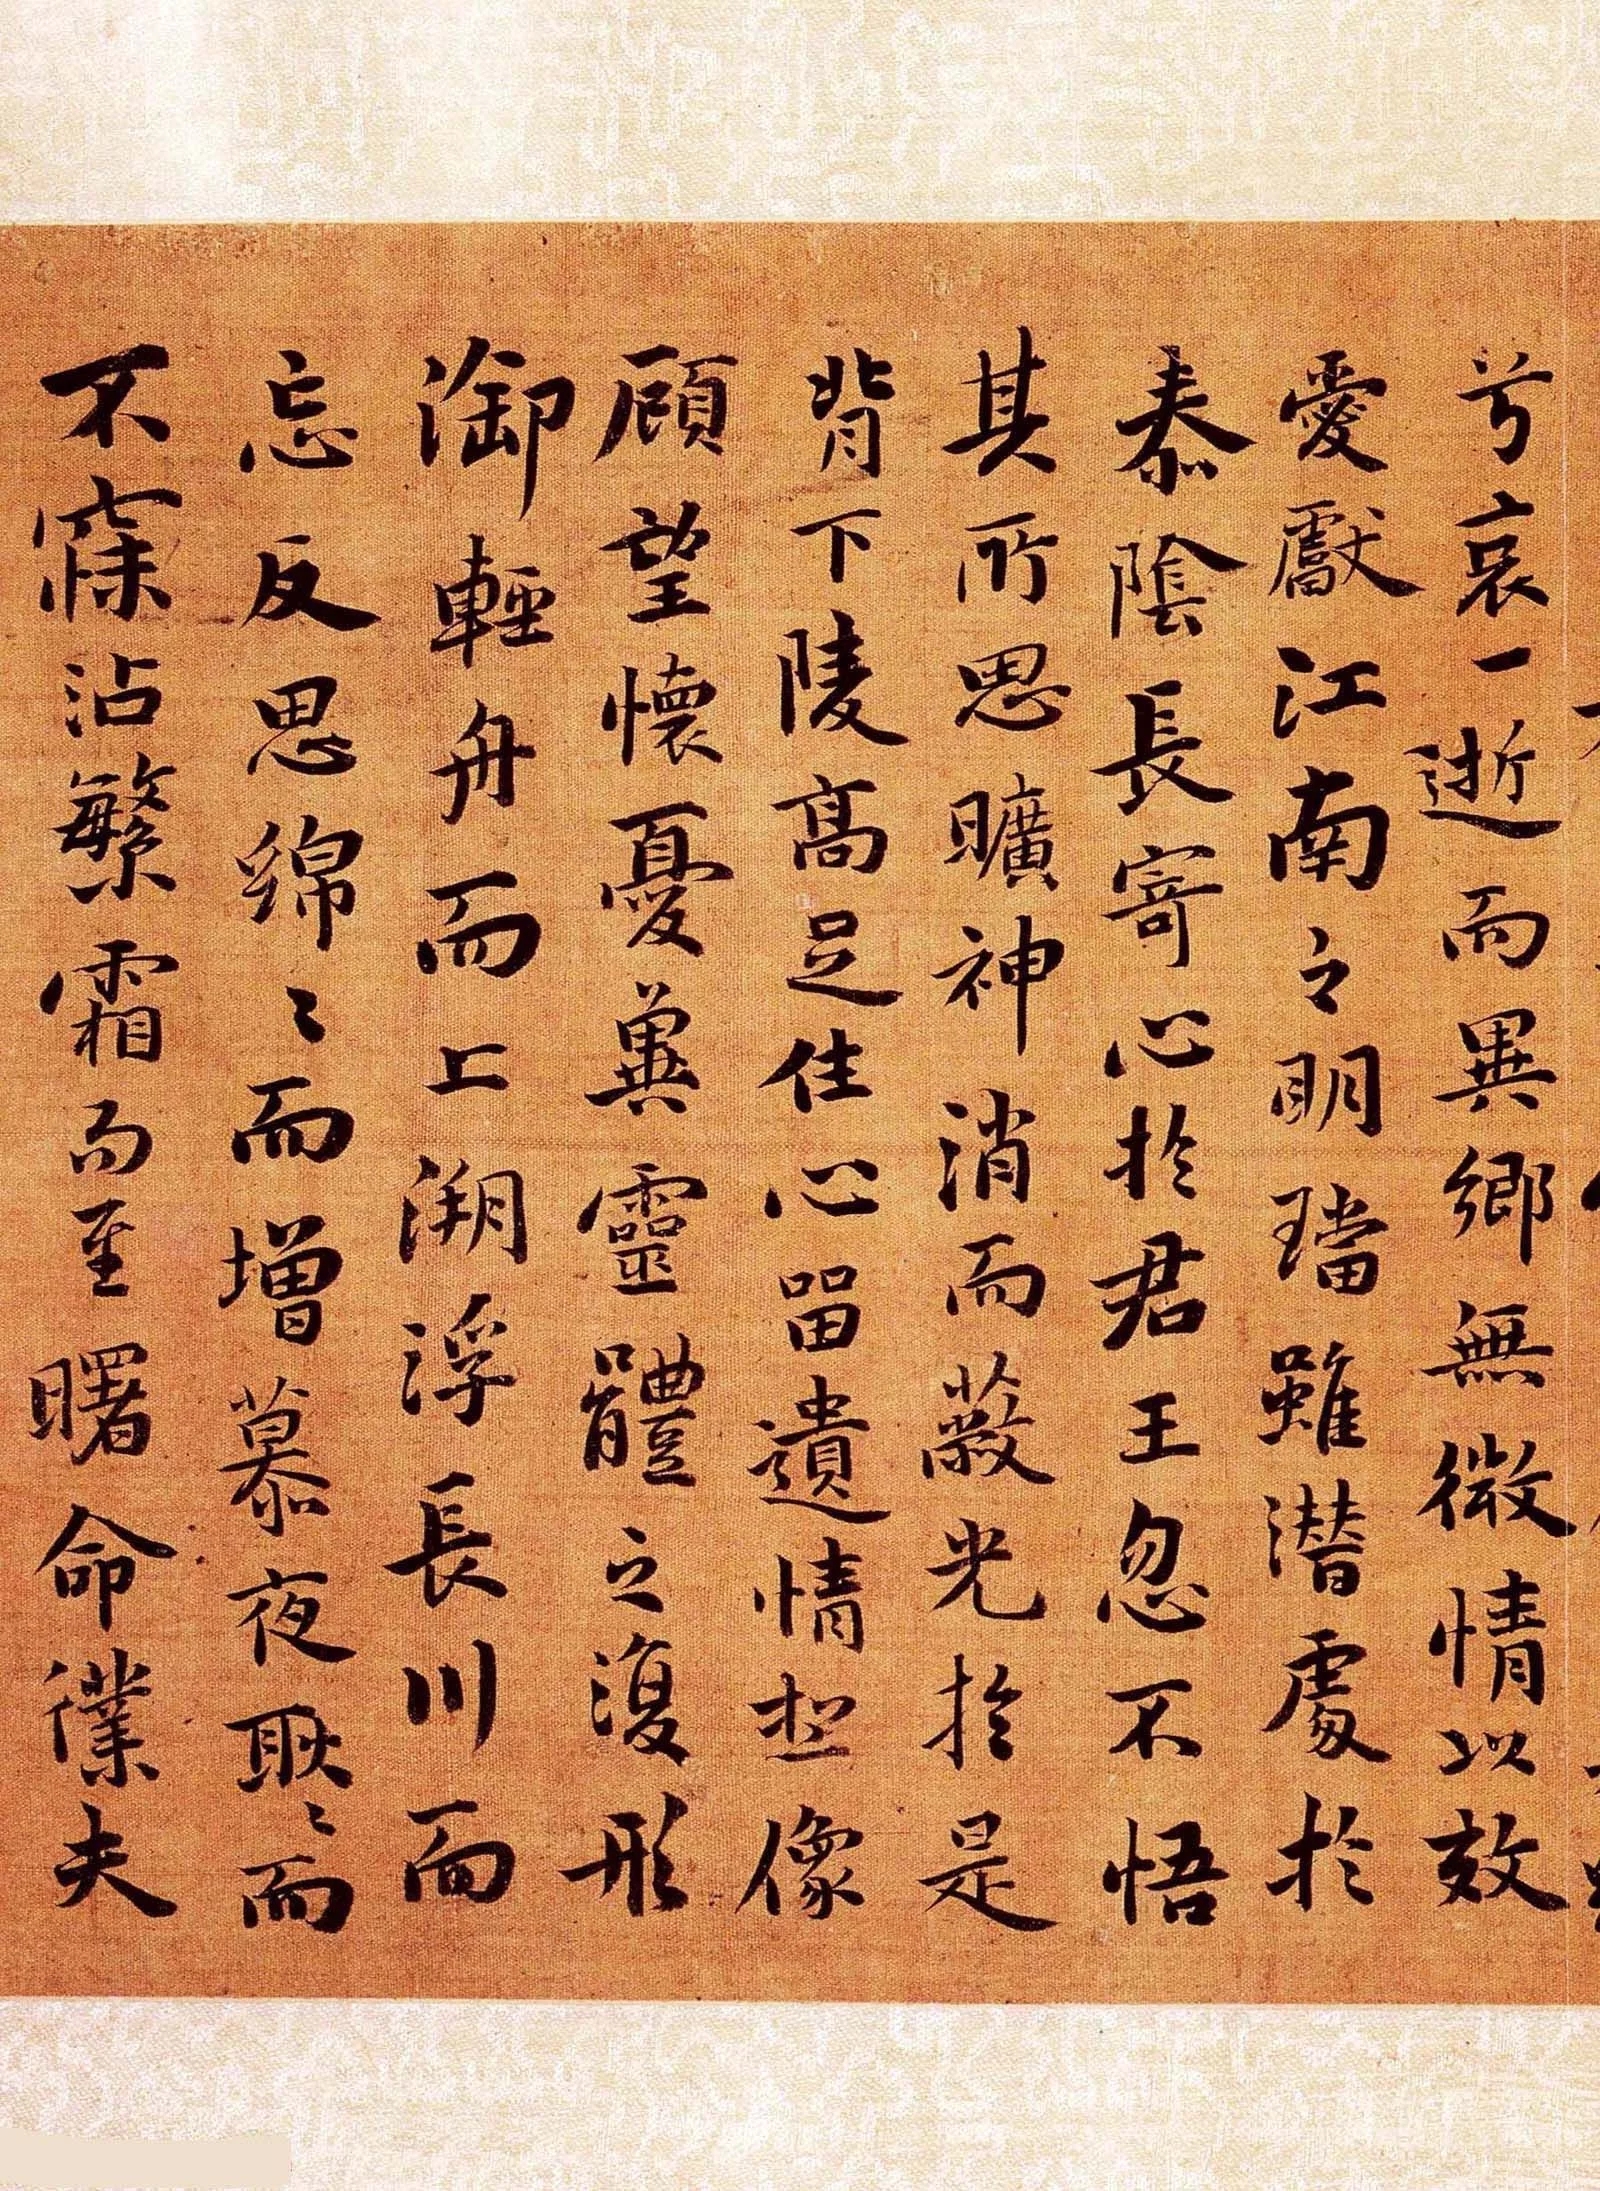 兮哀一逝而異鄉無微情以效
愛獻江南之明璫雖潛處於
泰陰長寄心於君王忽不悟
其所思曠神消而蔽光於是
背下陵高足住心留遺情想像
顧望懷憂冀靈體之復形
御輕舟而上溯浮長川而
忘反思綿〻而增慕夜耿〻而
不寐沾繁霜而至曙命僕夫